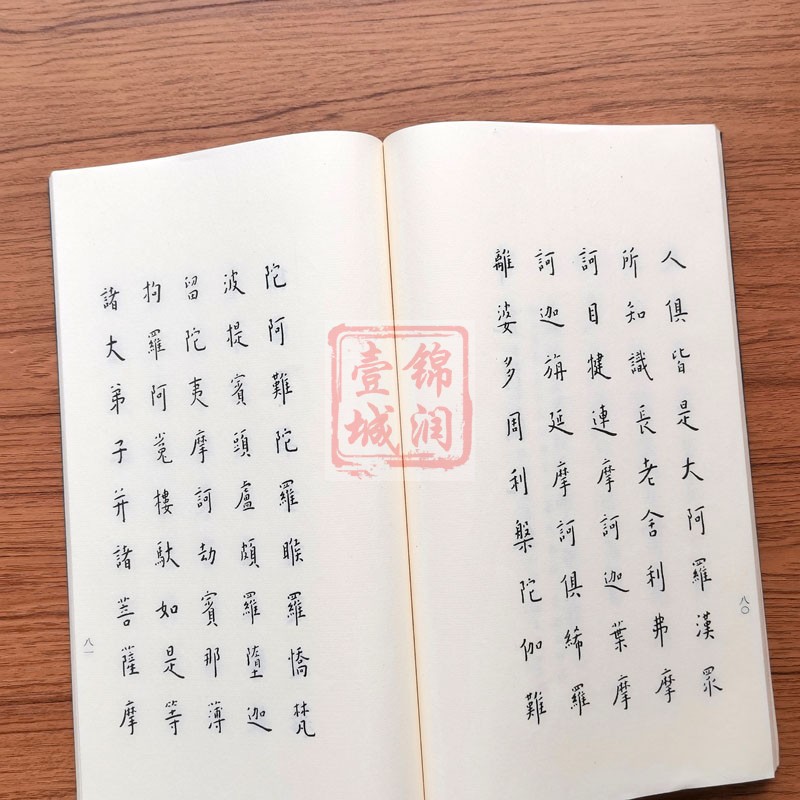 人俱皆是大阿羅漢眾
所知識長老舍利弗摩
訶目犍連摩訶迦葉摩
訶迦旃延摩訶俱絺羅
離婆多周利槃陀伽難
八〇
陀阿難陀羅睺羅憍梵
波提賓頭盧頗羅墮迦
留陀夷摩訶劫賓那薄
拘羅阿㝹樓馱如是等
諸大弟子并諸菩薩摩
八一
锦润
壹城